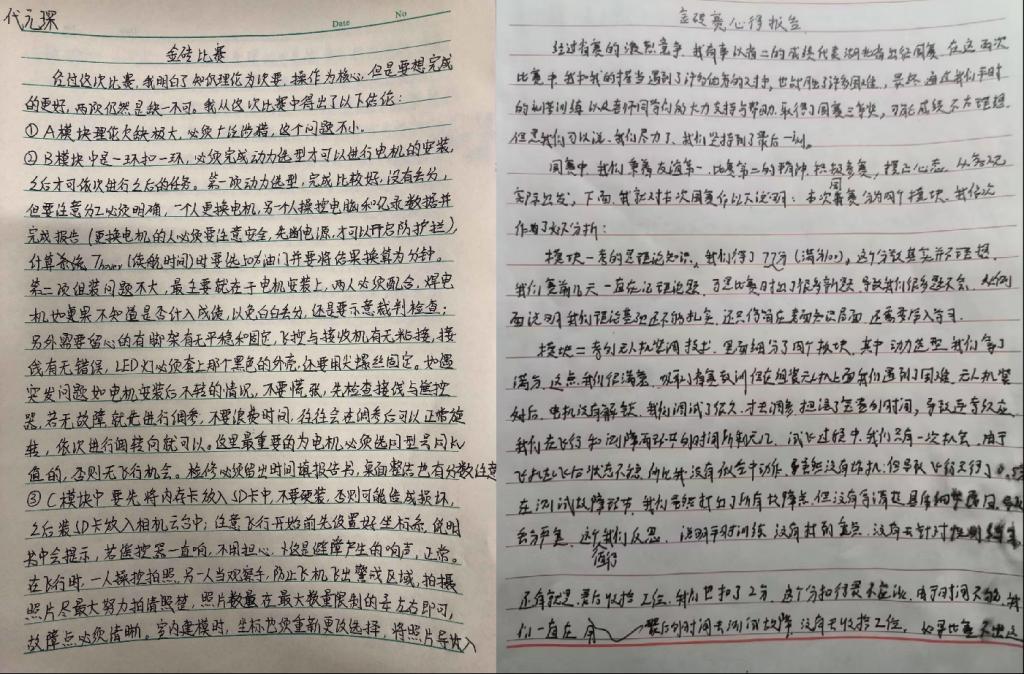 代元琛
Date
No
金砖比赛
经过这次比赛，我明白了知识理论为次要，操作为核心，但是要想完成
的更好，两项仍然是缺一不可。我从这次比赛中得出了以下结论：
①A模块理论欠缺极大，必须广泛涉猎，这个问题不小。
②B模块中是一环扣一环，必须完成动力选型才可以进行电机的安装，
之后才可依次进行之后的任务。第一项动力选型，完成比较好，没有丢分，
但要注意分工必须明确，一个人更换电机，另一个人操控电脑和记录数据并
完成报告（更换电机的人必须要注意安全，先断电源，才可以开启防护栏），
计算悬停 Thover（续航时间）时要选10%油门并要将结果换算为分钟。
第二项组装问题不大，最主要就在于电机安装上，两人必须配合，焊电
机如果不知道是否计入成绩，以免白白丢分，还是要示意裁判检查；
另外需要留心的有脚架有无平稳和固定，飞控与接收机有无粘接，接
线有无错误，LED灯必须套上那个黑色的外壳，还要用尖螺丝固定。如遇
突发问题如电机安装后不转的情况，不要慌张，先检查接线与遥控
器，若无故障就先进行调参，不要浪费时间，往往会在调参后可以正常旋
转，依次进行调转向就可以。这里最重要的为电机必须选同型号同kv
值的，否则无飞行机会。检修必须留出时间填报告书，桌面整洁也有分数注意
③C模块中要先将内存卡放入SD卡中，不要硬装，否则可能造成损坏，
之后装SD卡放入相机云台中；注意飞行开始前先设置好坐标系，说明
书中会提示，若遥控器一直响，不用担心，那是避障产生的响声，正常。
在飞行时，一人操控拍照，另一人当观察手，防止飞机飞出警戒区域，拍摄
照片尽最大努力拍清照整，照片数量在最大数量限制的左右即可，
故障点必须清晰。室内建模时，坐标也须重新更改选择，将照片导入
金砖赛心得报告
经过省赛的激烈竞争，我有幸以省二的成绩代表湖北省出征国赛，在这两次
比赛中我和我的搭当遇到了许多优秀的对手，也克服了许多困难，最终通过我们平时
的刻苦训练以及老师同学们的大力支持与帮助，取得了国赛三等奖，可能成绩不太理想，
但是我们可以说，我们尽力了，我们坚持到了最后一刻。
国赛中，我们秉着友谊第一，比赛第二的精神，积极竞赛，摆正心态，从客观
实际出发，下面，我就对本次国赛作以下说明：本次国赛分为两个模块，我依次
作出了如下分析：
模块一考的是理论知识，我们得了77分（满分100），这个分数其实并不理想，
我们赛前几天一直在记理论题，可是比赛时出了很多新题，导致我们很多题不会，从侧
面说明我们理论基础还不够扎实，还只停留在表面知识层面，还需要深入学习。
模块二考的无人机装调技术，里面细分了四个板块，其中动力选型，我们拿了
满分，这点我们很满意，吸取了省赛教训，但在组装无人机上面我们遇到了困难，无人机装
好后，电机没有解锁，我们调试了很久，才去调参，担误了宝贵的时间，导致连带效应，
我们在飞行和测障两环节的时间所剩无几，试飞过程中，我们只有一次机会，由于
飞机起飞后状态不稳，所以我没有做全中动作，虽然没有炸机，但导致飞行只得了
在测试故障环节，我们虽然打出了所有故障点，但没有弄清楚
去弄更，这令我们反思，说明平时训练没有打到重点，没有去针对
解
还有就是，最后收拾工位，我们也扣了2分，这个分扣得最不应该，由于时间不够，我
们一直在用最后的时间去测试故障，没有去收拾工位，如果比赛不出这